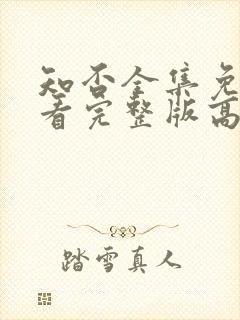 知否全集免
看完整版高
踏雪真人